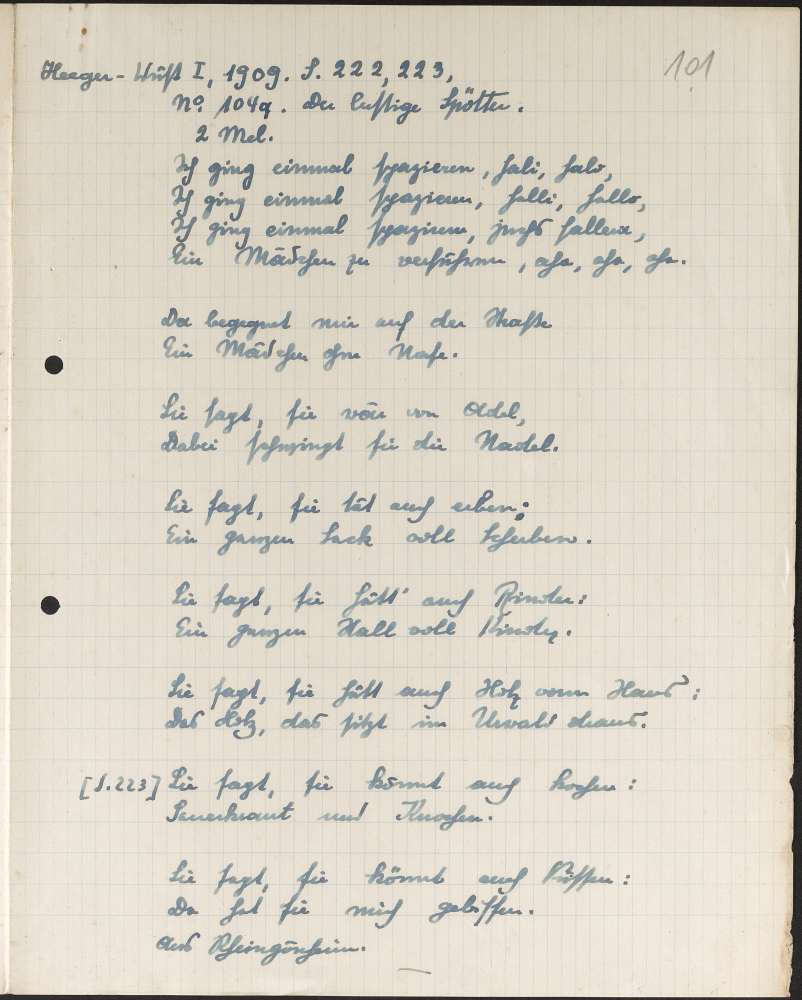 101
Heeger-Wüst I, 1909. S. 222, 223,
No. 104a. Der lustige Spötter.
2 Mel.
Ich ging einmal spazieren, hali, halo,
Ich ging einmal spazieren, halli, hallo,
Ich ging einmal spazieren, juchs hallera,
Ein Mädchen zu verführen, aha, aha, aha.
Da begegnet mir auf der Straße
Ein Mädchen ohne Nase.
Sie sagt, sie wär von Adel,
Dabei schwingt sie die Nadel.
Sie sagt, sie tät auch erben:
Ein ganzen Sack voll Scherben.
Sie sagt, sie hätt' auch Rinder:
Ein ganzen Stall voll Kinder.
Sie sagt, sie hätt auch Holz vorm Haus:
Das Holz, das sitzt im Urwald draus.
[S. 223] Sie sagt, sie könnt auch kochen:
Sauerkraut und Knochen.
Sie sagt, sie könnt auch küssen:
Da hat sie mich gebissen.
Aus Rheingönheim.